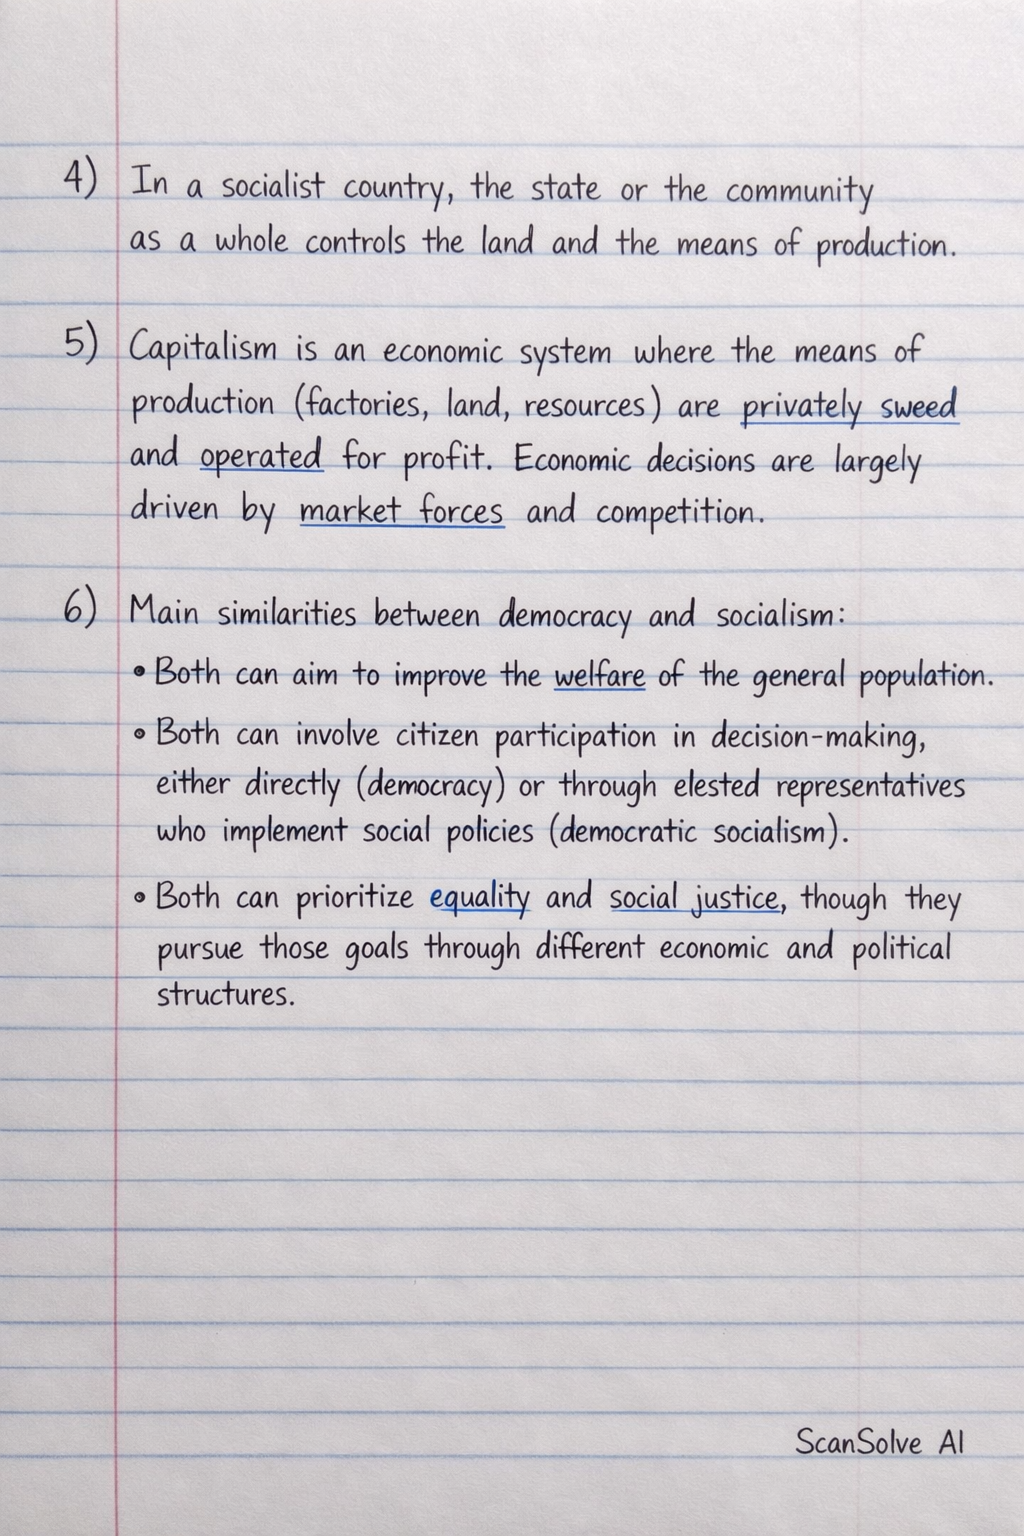 4) In a socialist country, the state or the community
as a whole controls the land and the means of production.
5) Capitalism is an economic system where the means of
production (factories, land, resources) are privately sweed
and operated for profit. Economic decisions are largely
driven by market forces and competition.
6) Main similarities between democracy and socialism:
• Both can aim to improve the welfare of the general population.
• Both can involve citizen participation in decision-making,
either directly (democracy) or through elested representatives
who implement social policies (democratic socialism).
• Both can prioritize equality and social justice, though they
pursue those goals through different economic and political
structures.
ScanSolve AI